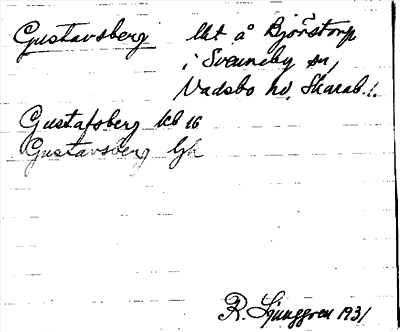 Gustavsberg lht å Björstorp
i Sveneby sn,
Vadsbo hd, Skarab. l.
Gustafsberg kb 16
Gustavsberg Gk
R. Ljunggren 1931